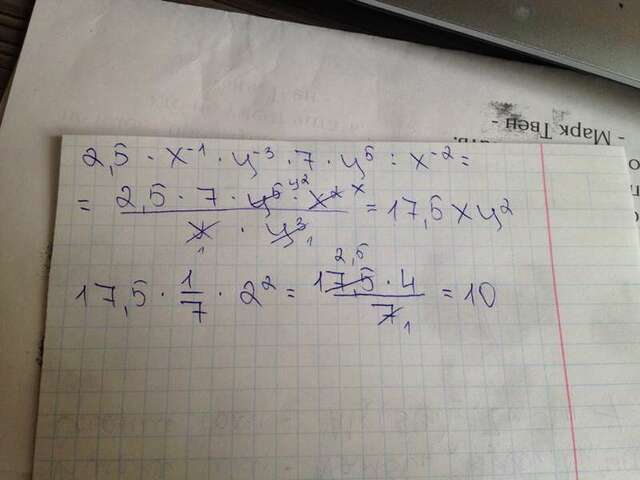 - Марк Твен -
2,5 · x⁻¹ · y⁻³ · 7 · y⁵ : x⁻² =
= 2,5 · 7 · y⁵ y² · x² x / x 1 · y³ 1 = 17,5 xy²
17,5 · 1/7 · 2² = 17,5 2,5 · 4 / 7 1 = 10